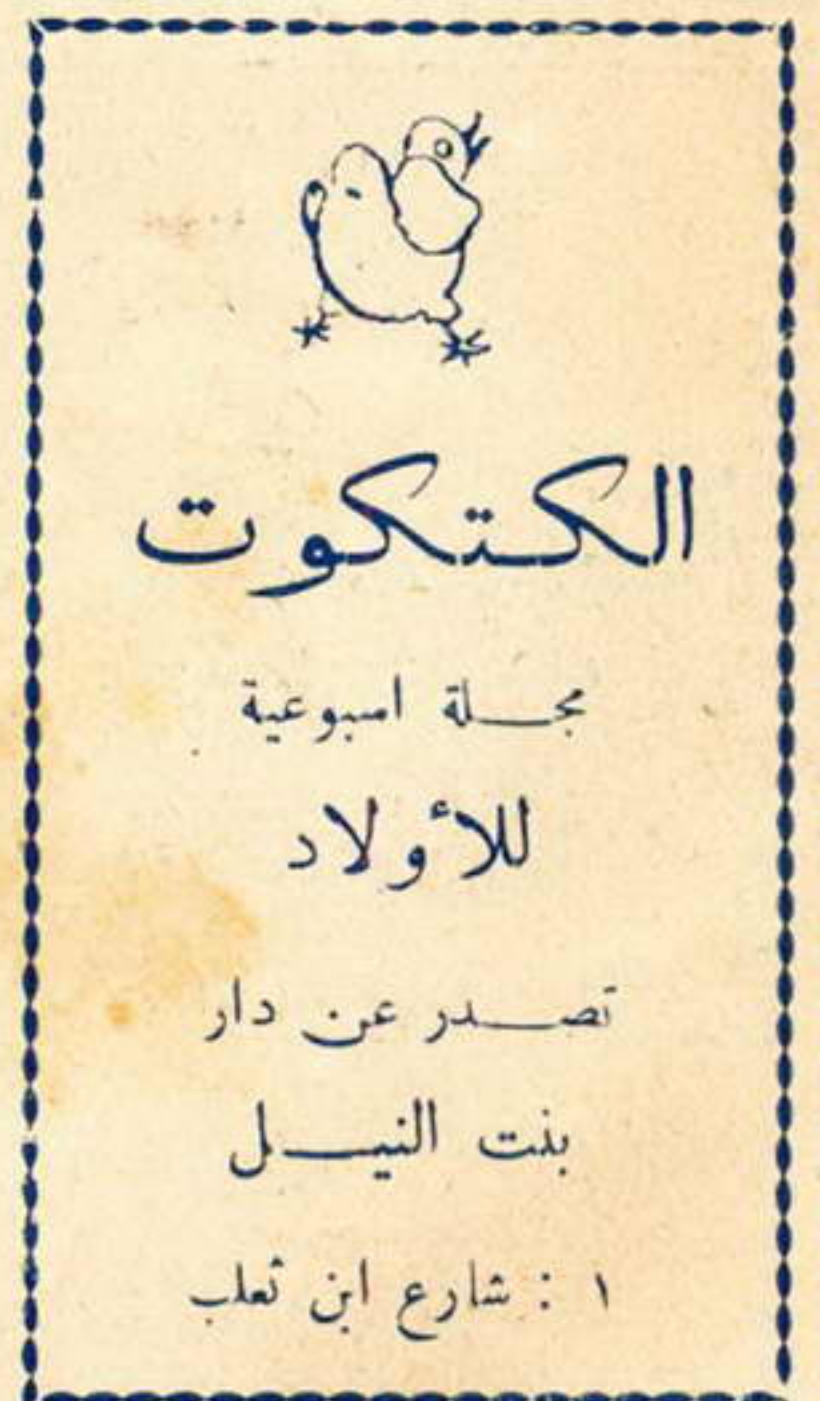 الكتكوت
مجلة اسبوعية
للأولاد
تصدر عن دار
بنت النيل
١ : شارع ابن ثعلب